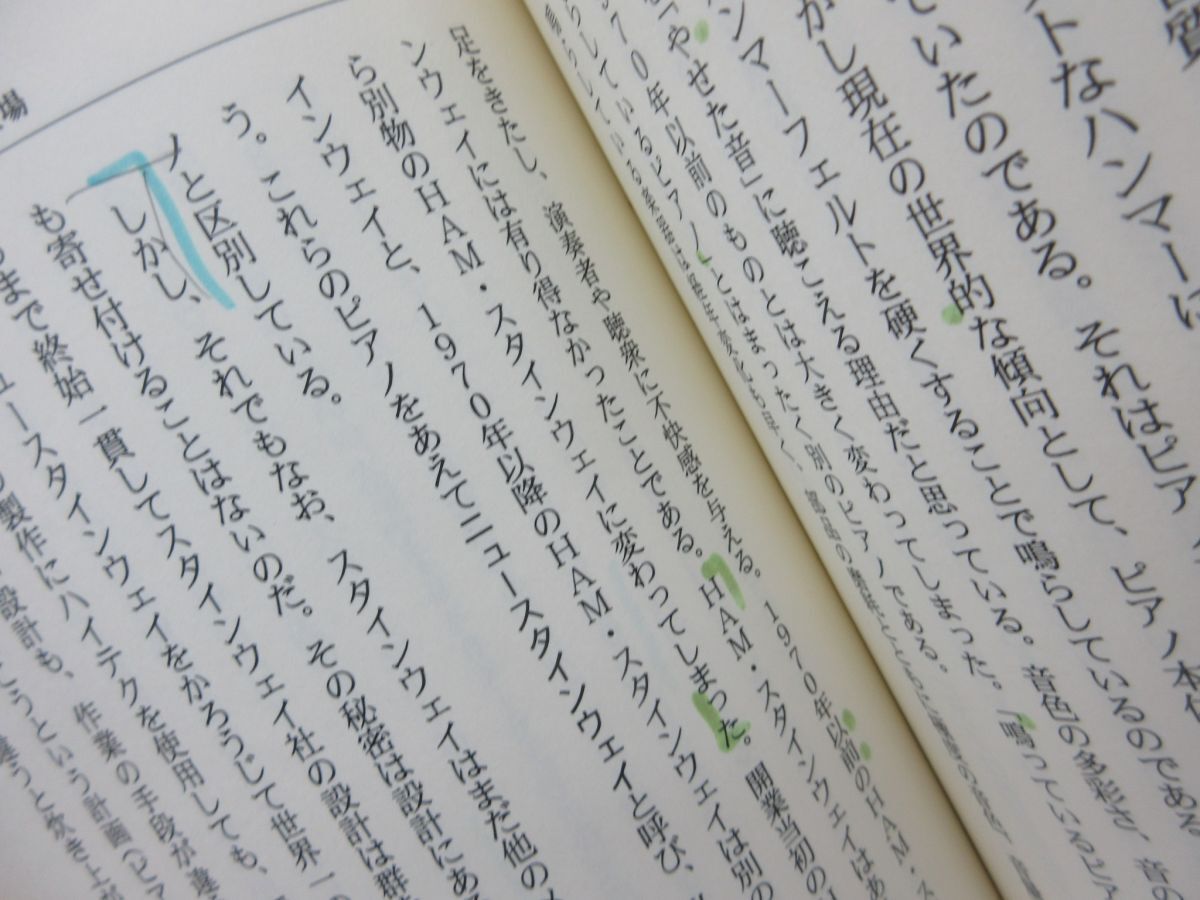 質
トなハンマーに
ていたのである。それはピア
かし現在の世界的な傾向として、ピアノ本体
ンマーフェルトを硬くすることで鳴らしているのである
「やせた音」に聴こえる理由だと思っている。音色の多彩さ、音の
70年以前のものとは大きく変わってしまった。「鳴っているピア
りしているピアノ」とはまったく別のピアノである。
足をきたし、演奏者や聴衆に不快感を与える。1970年以前のHAM・ス
ンウェイには有り得なかったことである。HAM・スタインウェイはあ
ら別物のHAM・スタインウェイに変わってしまった。開業当初の
インウェイと、1970年以降のHAM・スタインウェイは別の
う。これらのピアノをあえてニュースタインウェイと呼び、
ノと区別している。
しかし、それでもなお、スタインウェイはまだ他の
も寄せ付けることはないのだ。その秘密は設計にあ
まで終始一貫してスタインウェイ社の設計は群
ュースタインウェイをかろうじて世界一の
製作にハイテクを使用しても、
設計も、作業の手段が違
こうという計画(ピア
違うと炊き上が
場